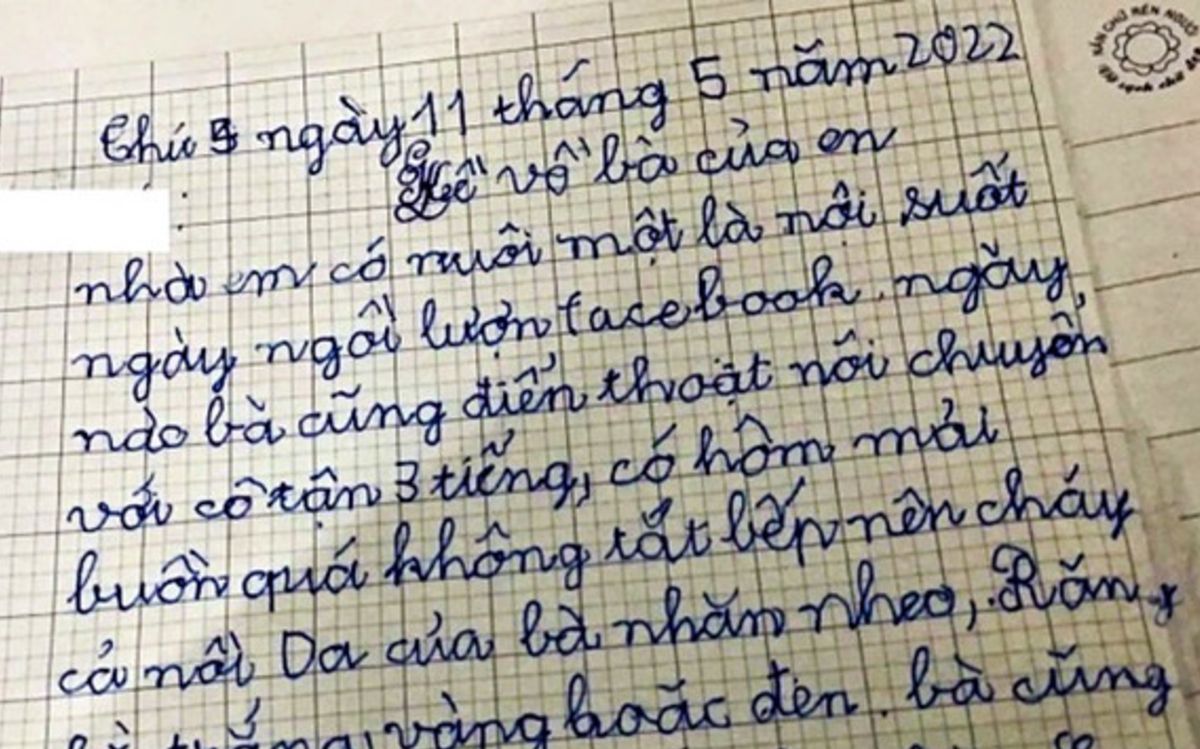 Thứ 5 ngày 11 tháng 5 năm 2022
Kể về bà của en
nhà em có nuôi một là nội suốt
ngày ngồi lượn facebook. ngày
nào bà cũng điển thoạt nói chuyển
với cô tận 3 tiếng, có hôm mải
buồn quá không tắt bếp nên cháy
cả nồi Da của bà nhăn nheo, Răng
vàng hoặc đen. bà cũng